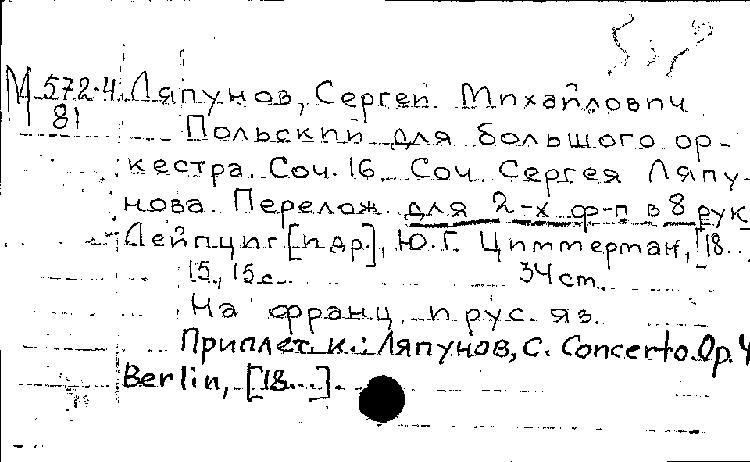 М 572.4 Ляпунов, Сергей Михайлович
81 Польский для большого ор-
кестра. Соч. 16. Соч. Сергея Ляпу-
нова. Перелож. для 2-х ф-п в 8 рук
Лейпциг [и др.], Ю.Г. Циммерман, [18...
15, 15 с. 34 cm.
На франц. и рус. яз.
Приплет. к.: Ляпунов, С. Concerto. Op. 4
Berlin, [18...].